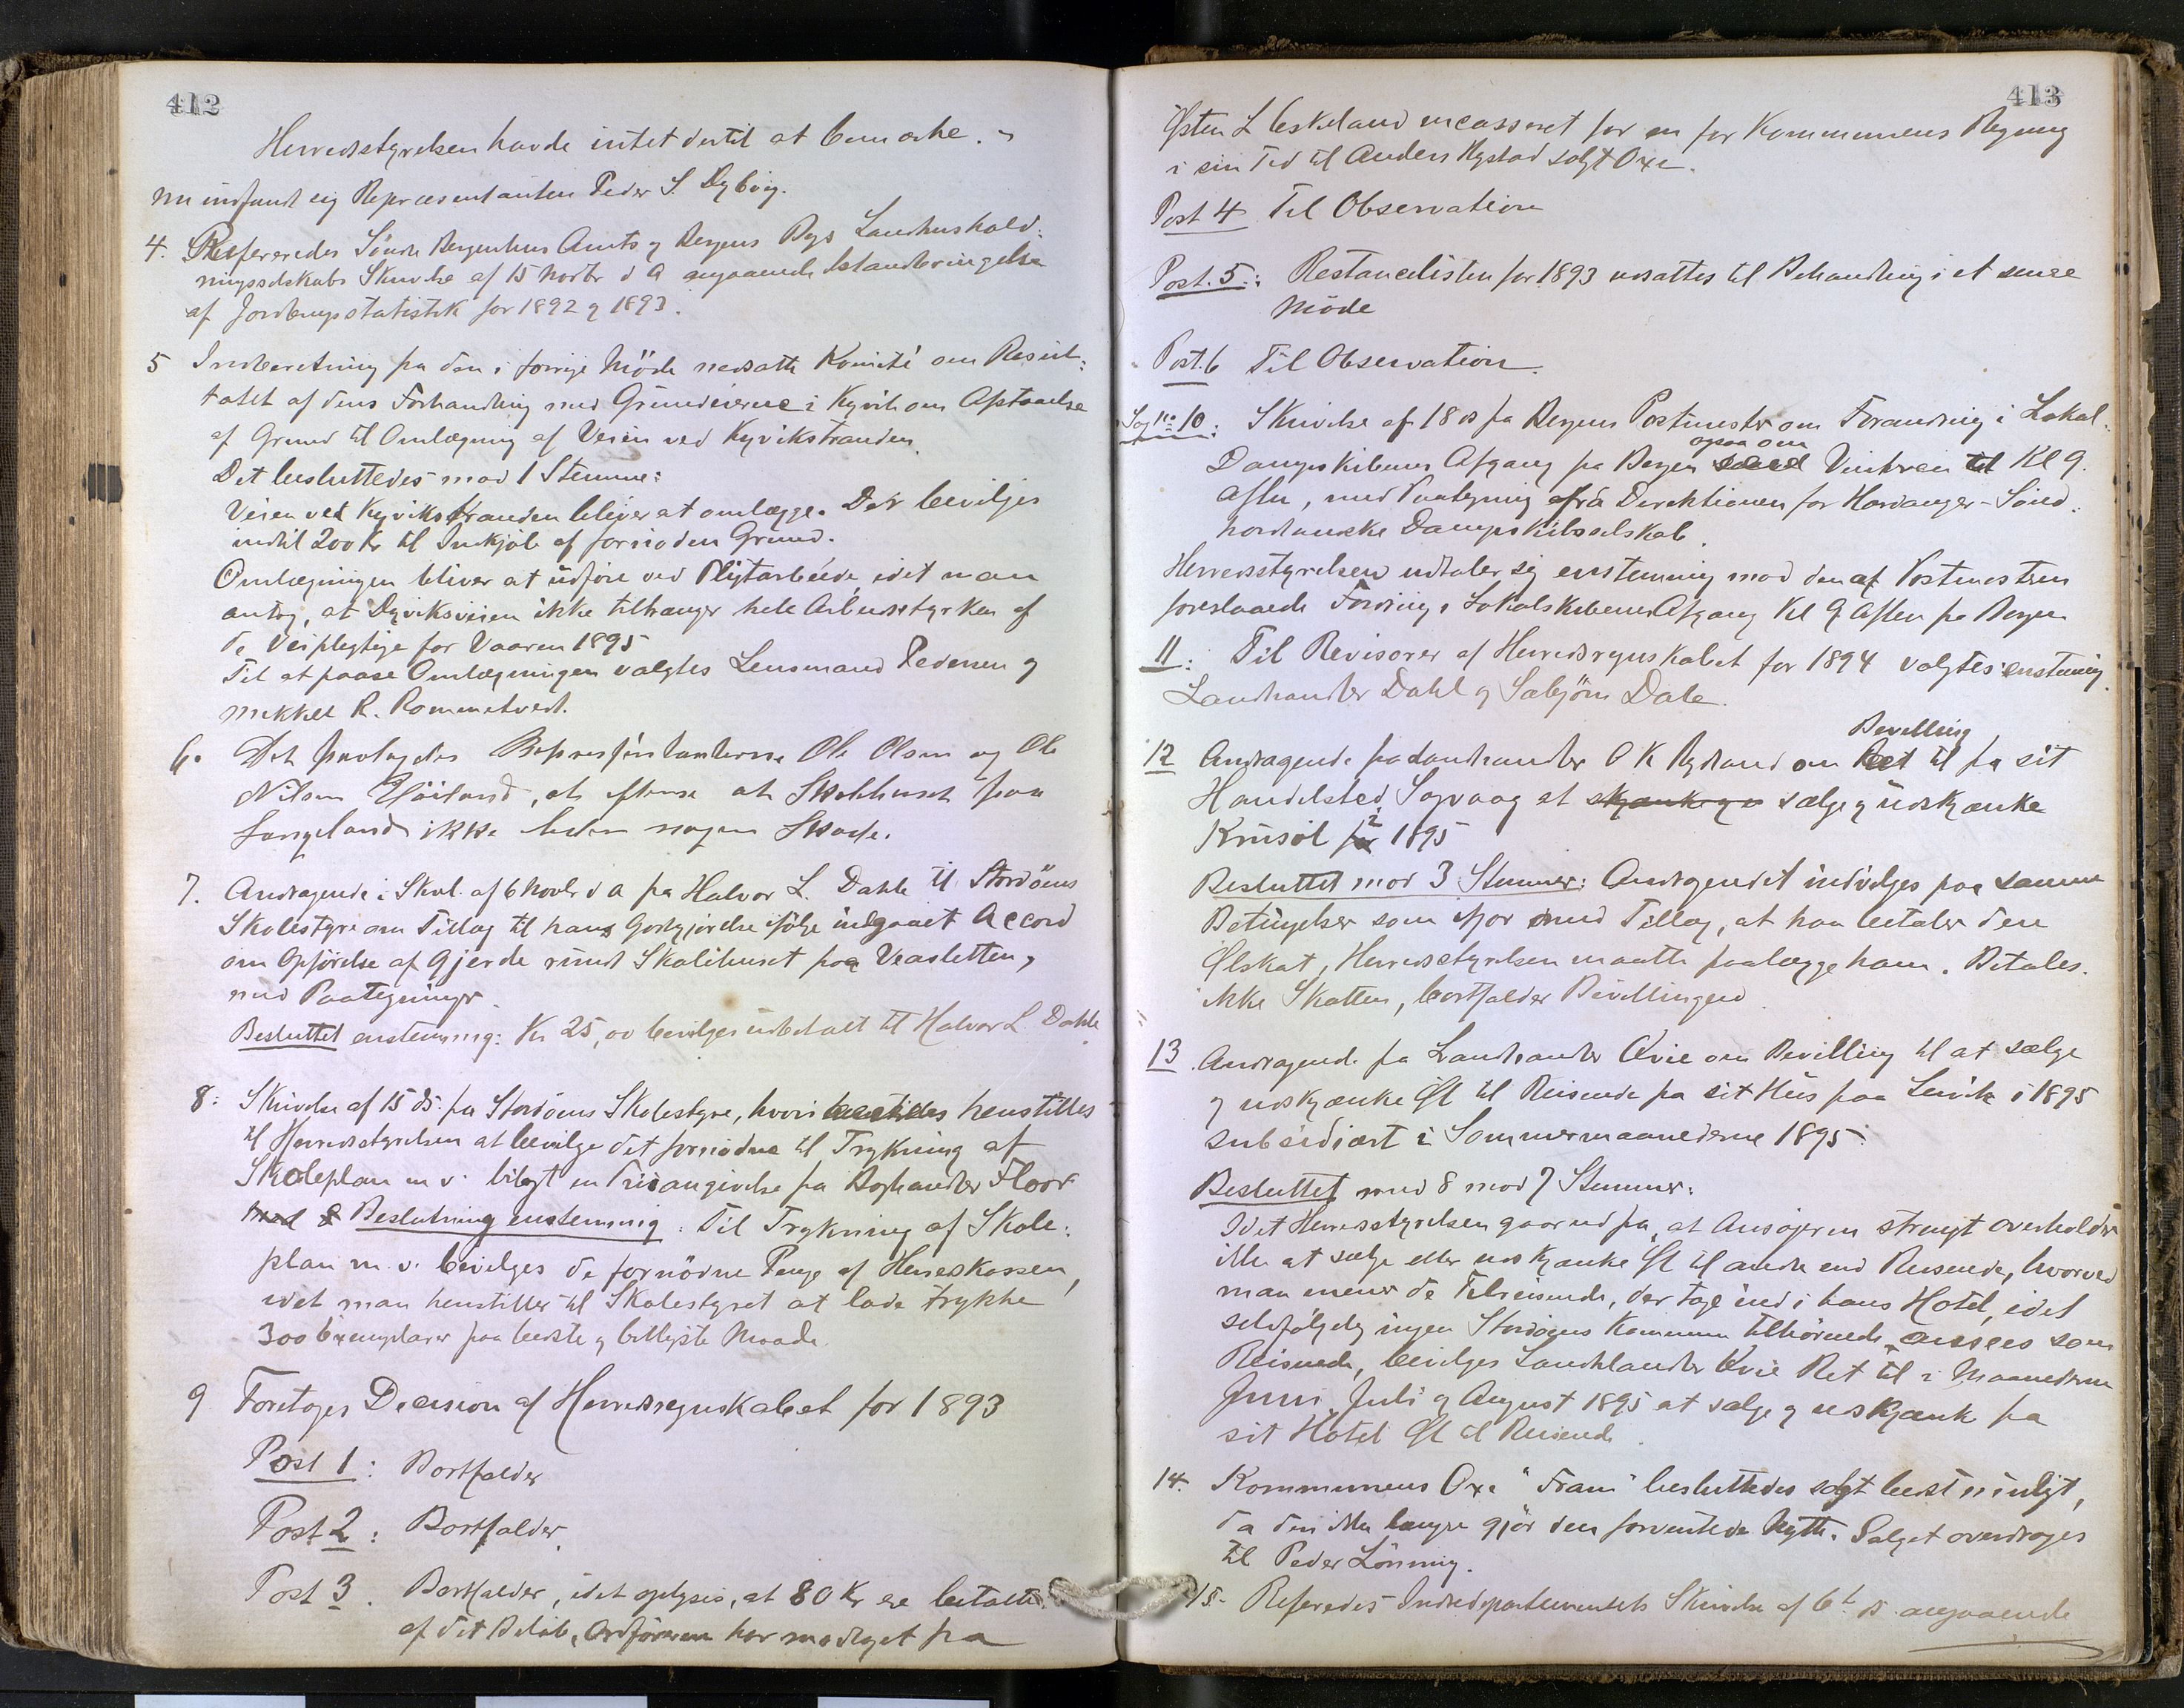 412
Herredsstyrelsen havde intet dertil at bemærke.
Nu indfandt sig Repræsentanten Peder S. Dybvig.
4. Refereredes Söndre Bergenhus Amts og Bergens Bys Landhushold-
ningsselskabs Skrivelse af 15 Novbr d A angaaende Istandbringelse
af Jordbrugsstatistik for 1892 og 1893.
5 Indberetning fra den i forrige Möde nedsatte Komité om Resul-
tatet af dens Forhandling med Grundeierne i Kyvik om Afstaaelse
af Grund til Omlægning af Veien ved Kyvikstranden.
Det besluttedes mod 1 Stemme:
Veien ved Kyvikstranden bliver at omlægge. Der bevilges
indtil 200 Kr til Indkjöb af fornöden Grund.
Omlægningen bliver at udföre ved Pligtarbeide, idet man
antog, at Dyviksveien ikke tiltrænger hele Arbeidsstyrken af
de Veipligtige for Vaaren 1895
Til at paase Omlægningen valgtes Lensmand Pedersen og
Mikkel R. Rommetvedt.
6. Det paalagdes Repræsentanterne Ole Olsen og Ole
Nilsen Höiland, at eftersee at Skolehuset paa
Langeland ikke lider nogen Skade.
7. Andragende i Skriv. af 6 Novbr d A fra Halvor L. Dahle til Stordöens
Skolestyre om Tillæg til hans Godtgjörelse ifölge indgaaet Accord
om Opförelse af Gjerde rundt Skolehuset paa Veasletten,
med Paategninger.
Besluttet enstemmig: Kr 25,00 bevilges udbetalt til Halvor L. Dahle
8. Skrivelse af 15 ds. fra Stordöens Skolestyre, hvori henstilles
til Herredsstyrelsen at bevilge det fornödne til Trykning af
Skoleplan m v. bilagt en Prisangivelse fra Boghandler Floor
Beslutning enstemmig: Til Trykning af Skole-
plan m. v. bevilges de fornödne Penge af Herredskassen,
idet man henstiller til Skolestyret at lade trykke
300 Exemplarer paa bedste og billigste Maade.
9 Foretoges Decision af Herredsregnskabet for 1893
Post 1: Bortfalder
Post 2: Bortfalder.
Post 3. Bortfalder, idet oplyses, at 80 Kr ere betalte
af det Belöb, Ordföreren har modtaget fra
413
Östen L Eskeland incasseret for en for Kommunens Regning
i sin Tid til Anders Rystad solgt Oxe.
Post 4 Til Observation
Post. 5: Restancelisten for 1893 udsattes til Behandling i et senere
Möde
Post. 6 Til Observation.
Sag No 10: Skrivelse af 18 ds fra Bergens Postmester om Forandring i Lokal-
Dampskibenes Afgang fra Bergen ogsaa om Vinteren til Kl 9
Aften, med Paategning fra Direktionen for Hardanger-Sönd-
hordlandske Dampskibsselskab.
Herredsstyrelsen udtaler sig enstemmig mod den af Postmesteren
foreslaaede Forandring i Lokalskibenes Afgang Kl 9 Aften fra Bergen
11: Til Revisorer af Herredsregnskabet for 1894 valgtes enstemmig
Landhandler Dahl og Salgjörn Dale.
12 Andragende fra Landhandler O K Rydland om Bevilling til fra sit
Handelsted Sagvaag at sælge og udskjænke
Krusöl i 1895
Besluttet mod 3 Stemmer: Andragendet indvilges paa samme
Betingelser som ifjor med Tillæg, at han betaler den
Ölskat, Herredsstyrelsen maatte paalægge ham. Betales
ikke Skatten, bortfalder Bevillingen.
13 Andragende fra Landhandler Qvie om Bevilling til at sælge
og udskjænke Öl til Reisende fra sit Hus paa Lervik i 1895
subsidiært i Sommermaanederne 1895.
Besluttet med 8 mod 7 Stemmer:
Idet Herredsstyrelsen gaar ud fra, at Ansögeren strengt overholder
ikke at sælge eller udskjænke Öl til andre end Reisende, hvorved
man mener de Tilreisende, der tage ind i hans Hotel, idet
selvfölgelig ingen Stordöens Kommune tilhörende ansees som
Reisende, bevilges Landhandler Qvie Ret til i Maanederne
Juni, Juli og August 1895 at sælge og udskjænke fra
sit Hotel Öl til Reisende.
14. Kommunens Oxe "Fram" besluttedes solgt bedst muligt,
da den ikke længre gjör den forventede Nytte. Salget overdroges
til Peder Lönning.
15. Referedes Indredepartementets Skrivelse af 6te ds angaaende